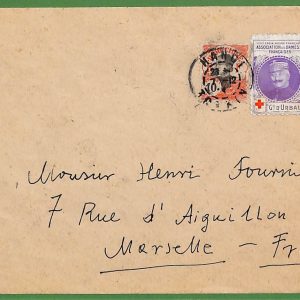 HANOI
ASSOCIATION DES DAMES
FRANÇAISES
Gal D'URBAL
Monsieur Henri Fournier
7 Rue d'Aiguillon
Marselle - Fr